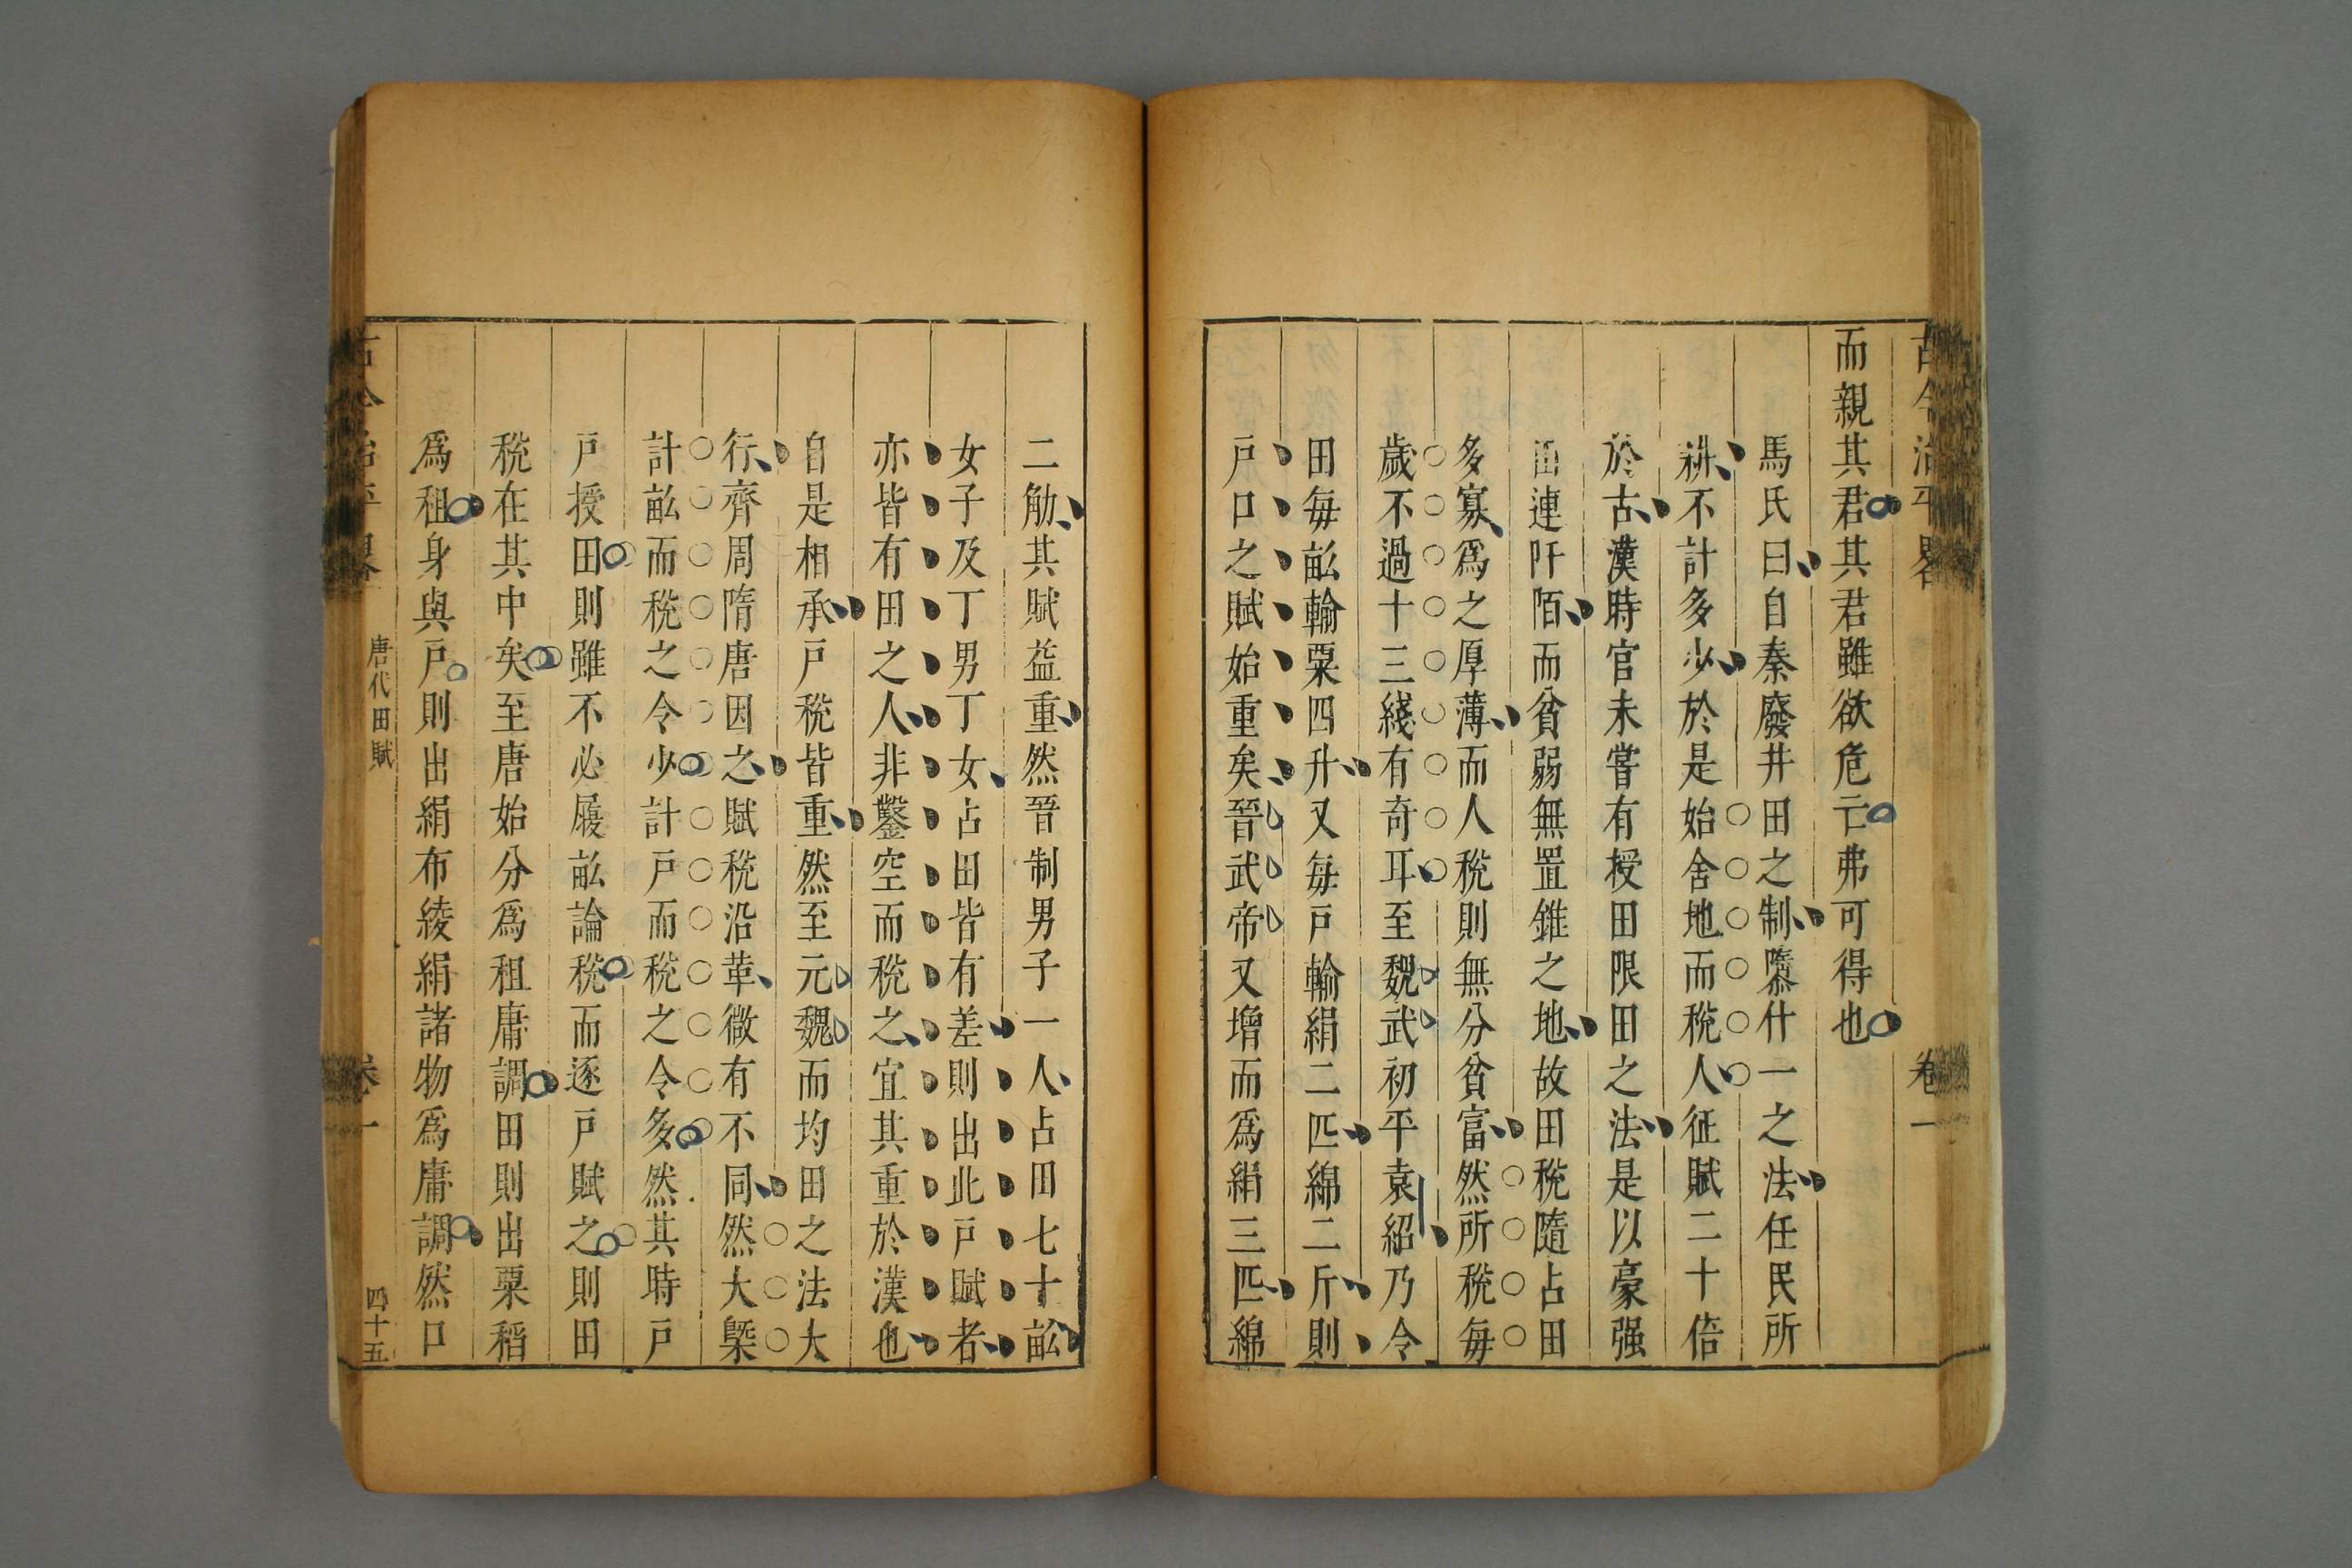 古今治平畧
卷一
而親其君其君雖欲危亡弗可得也
馬氏曰自秦廢井田之制隳什一之法任民所
耕不計多少於是始舍地而稅人征賦二十倍
於古漢時官未嘗有授田限田之法是以豪强
田連阡陌而貧弱無置錐之地故田稅隨占田
多寡爲之厚薄而人稅則無分貧富然所稅每
歲不過十三錢有奇耳至魏武初平袁紹乃令
田每畝輸粟四升又每戶輸絹二匹綿二斤則
戶口之賦始重矣晉武帝又增而爲絹三匹綿
二觔其賦益重然晉制男子一人占田七十畝
女子及丁男丁女占田皆有差則出此戶賦者
亦皆有田之人非鑿空而稅之宜其重於漢也
自是相承戶稅皆重然至元魏而均田之法大
行齊周隋唐因之賦稅沿革微有不同然大槩
計畝而稅之令少計戶而稅之令多然其時戶
戶授田則雖不必履畝論稅而逐戶賦之則田
稅在其中矣至唐始分爲租庸調田則出粟稻
爲租身與戶則出絹布綾絹諸物爲庸調然口
古今治平畧
唐代田賦
卷一
四十五